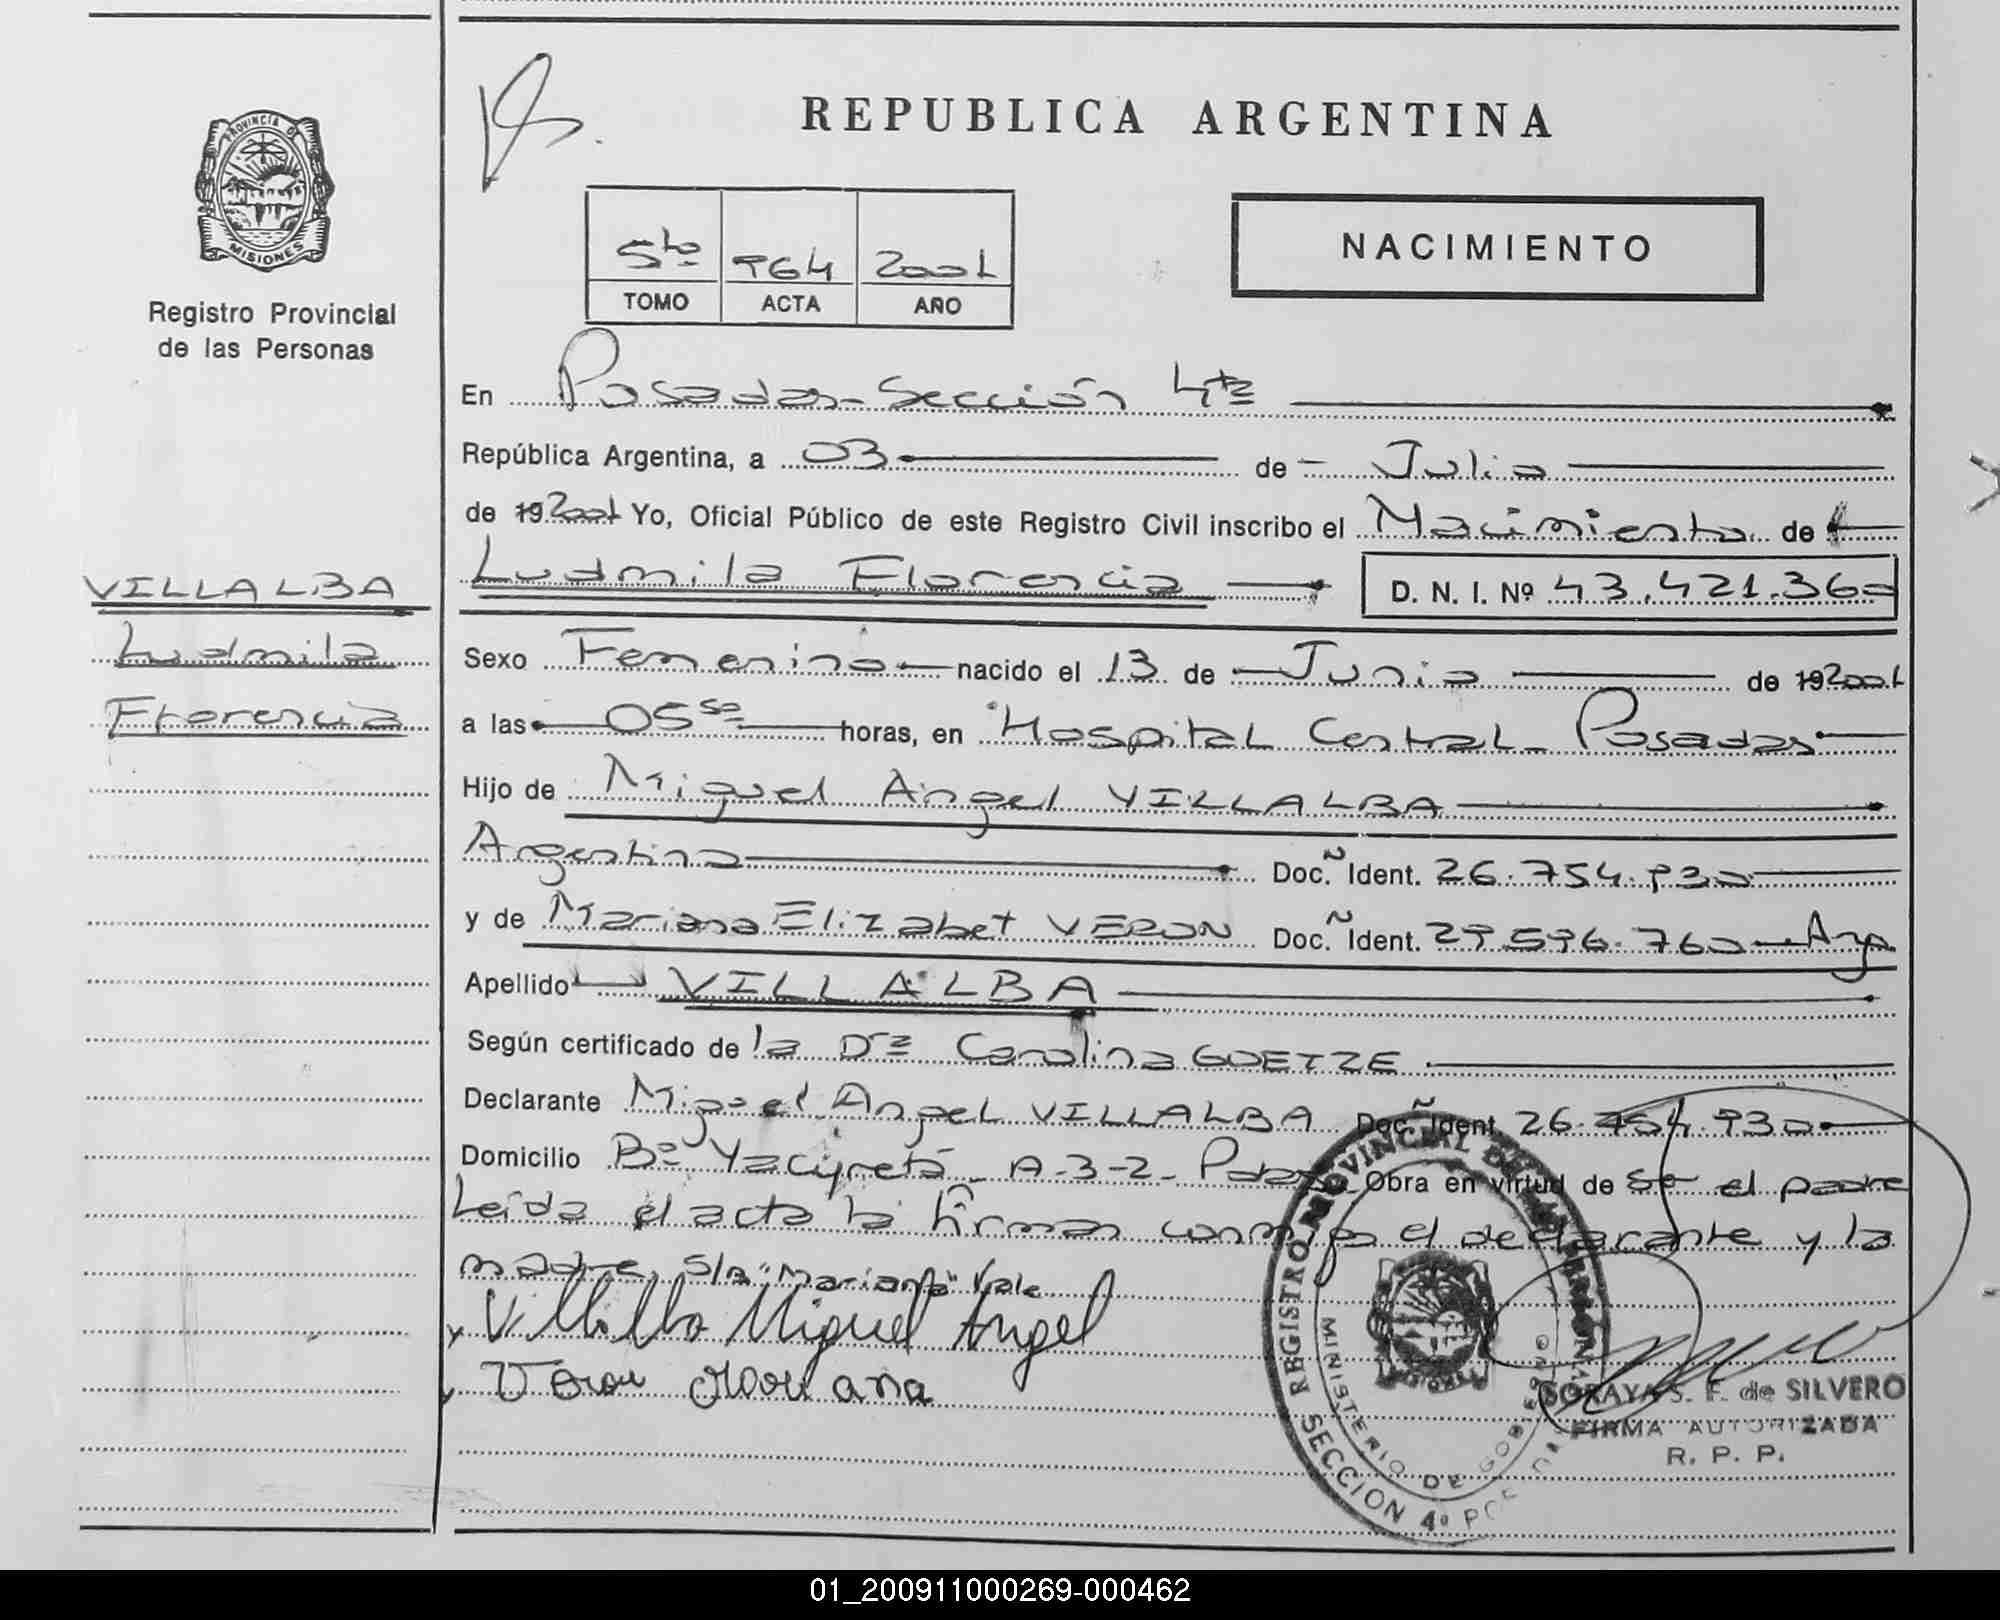 REPUBLICA ARGENTINA
PROVINCIA DE
MISIONES
Registro Provincial
de las Personas
NACIMIENTO
5to 964 2001
TOMO ACTA AÑO
En Posadas - Sección 4ta
República Argentina, a 03 de Julio
de 19 2001 Yo, Oficial Público de este Registro Civil inscribo el Nacimiento de
VILLALBA
Ludmila
Florencia
Ludmila Florencia D. N. I. Nº 43.421.360
Sexo Femenino nacido el 13 de Junio de 19 2001
a las 05 50 horas, en Hospital Central - Posadas
Hijo de Miguel Angel VILLALBA
Argentino Doc. Ident. 26.754.930
y de Mariana Elizabet VERON Doc. Ident. 29.596.760 - Arg
Apellido VILLALBA
Según certificado de la Dra Carolina GOETZE
Declarante Miguel Angel VILLALBA Doc. Ident. 26.754.930
Domicilio Bº Yacyretá - A-3-2- Obra en virtud de ser el padre
Leída el acta la firman conmigo el declarante y la
madre. S/R "Mariana" Vale
Villalba Miguel Angel
Veron Mariana
REGISTRO PROVINCIAL DE LAS PERSONAS
MINISTERIO DE GOBIERNO
SECCION 4º
SORAYA S. F. de SILVERO
FIRMA AUTORIZADA
R. P. P.
01_200911000269-000462